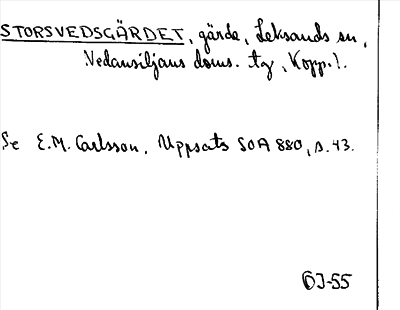 STORSVEDSGÄRDET, gärde, Leksands sn,
Nedansiljans doms. tg, Kopp. l.
Se E.M. Carlsson, Uppsats SOA 880, s. 43.
OJ-55